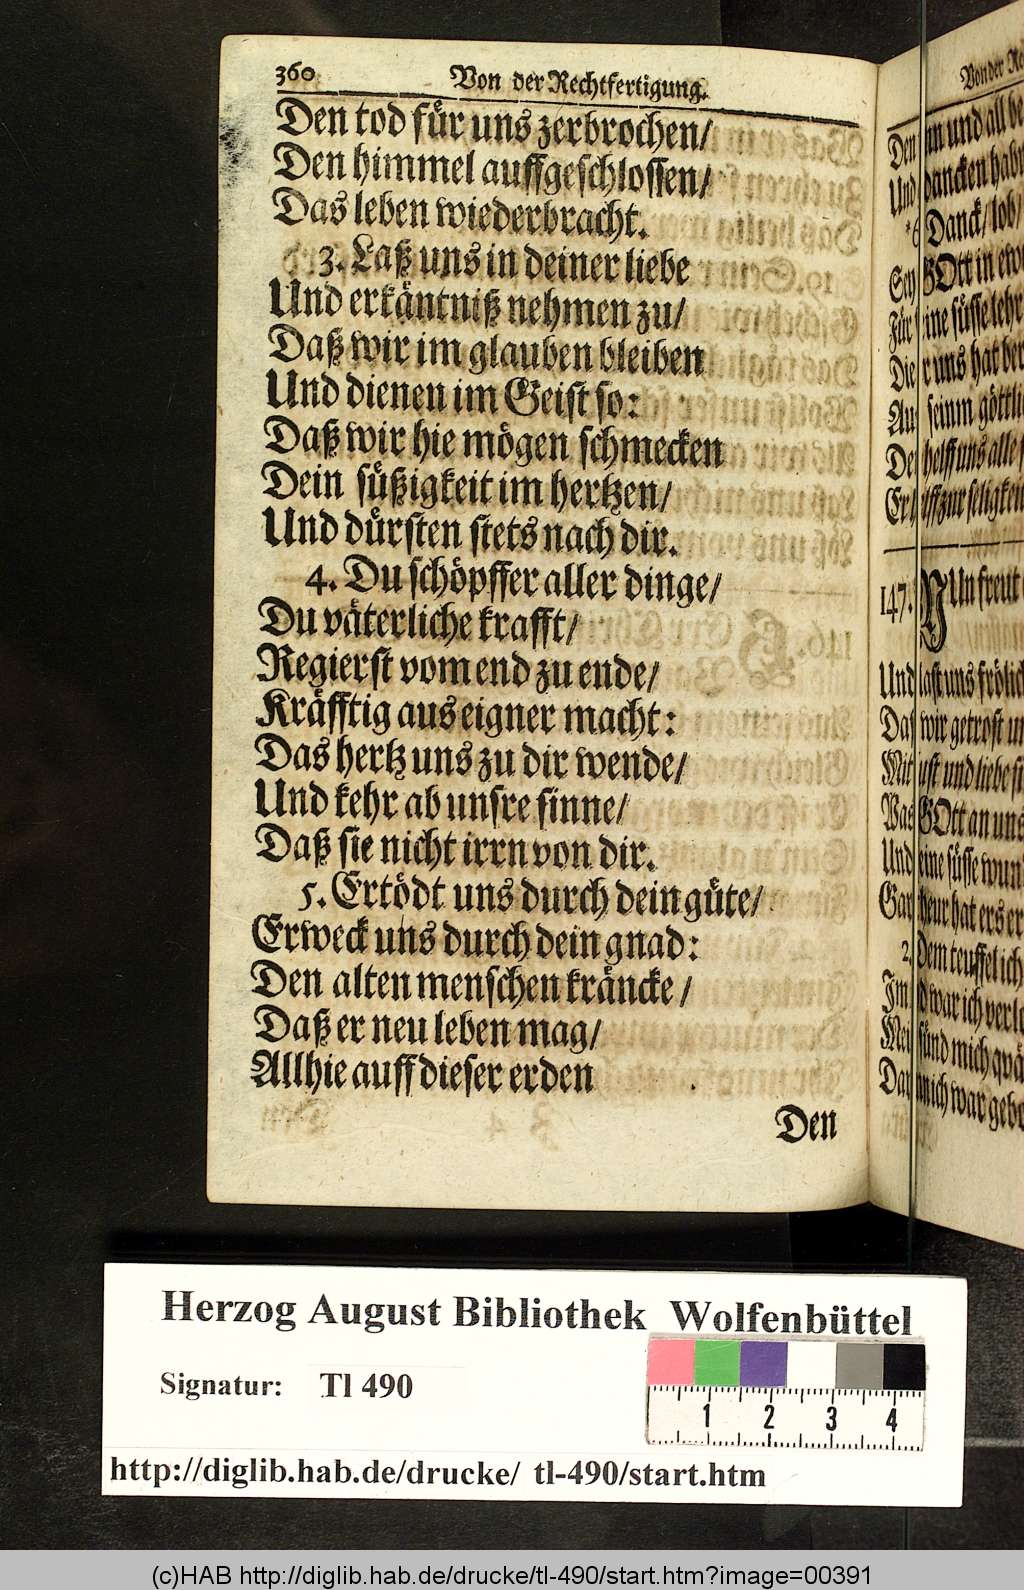 360 Von der Rechtfertigung.
Den tod für uns zerbrochen/
Den himmel auffgeschlossen/
Das leben wiederbracht.
3. Laß uns in deiner liebe
Und erkäntniß nehmen zu/
Daß wir im glauben bleiben
Und dienen im Geist so:
Daß wir hie mögen schmecken
Dein süßigkeit im hertzen/
Und dürsten stets nach dir.
4. Du schöpffer aller dinge/
Du väterliche krafft/
Regierst vom end zu ende/
Kräfftig aus eigner macht:
Das hertz uns zu dir wende/
Und kehr ab unsre sinne/
Daß sie nicht irrn von dir.
5. Ertödt uns durch dein güte/
Erweck uns durch dein gnad:
Den alten menschen kräncke/
Daß er neu leben mag/
Allhie auff dieser erden
Den
Von der
Den und all
Und dancken
Danck/ lob/
Sey GOtt in
Für süsse
Die uns hat
seinm
De helff uns alle
zur
147. NUn freut
Und last uns
Daß wir getrost
Mit und liebe
Was GOtt an uns
Und süsse
Gar hat ers
2. Dem teuffel ich
Im war ich
Mei sünd mich
mich war
Herzog August Bibliothek Wolfenbüttel
Signatur: Tl 490
1 2 3 4
http://diglib.hab.de/drucke/ tl-490/start.htm
(c)HAB http://diglib.hab.de/drucke/tl-490/start.htm?image=00391